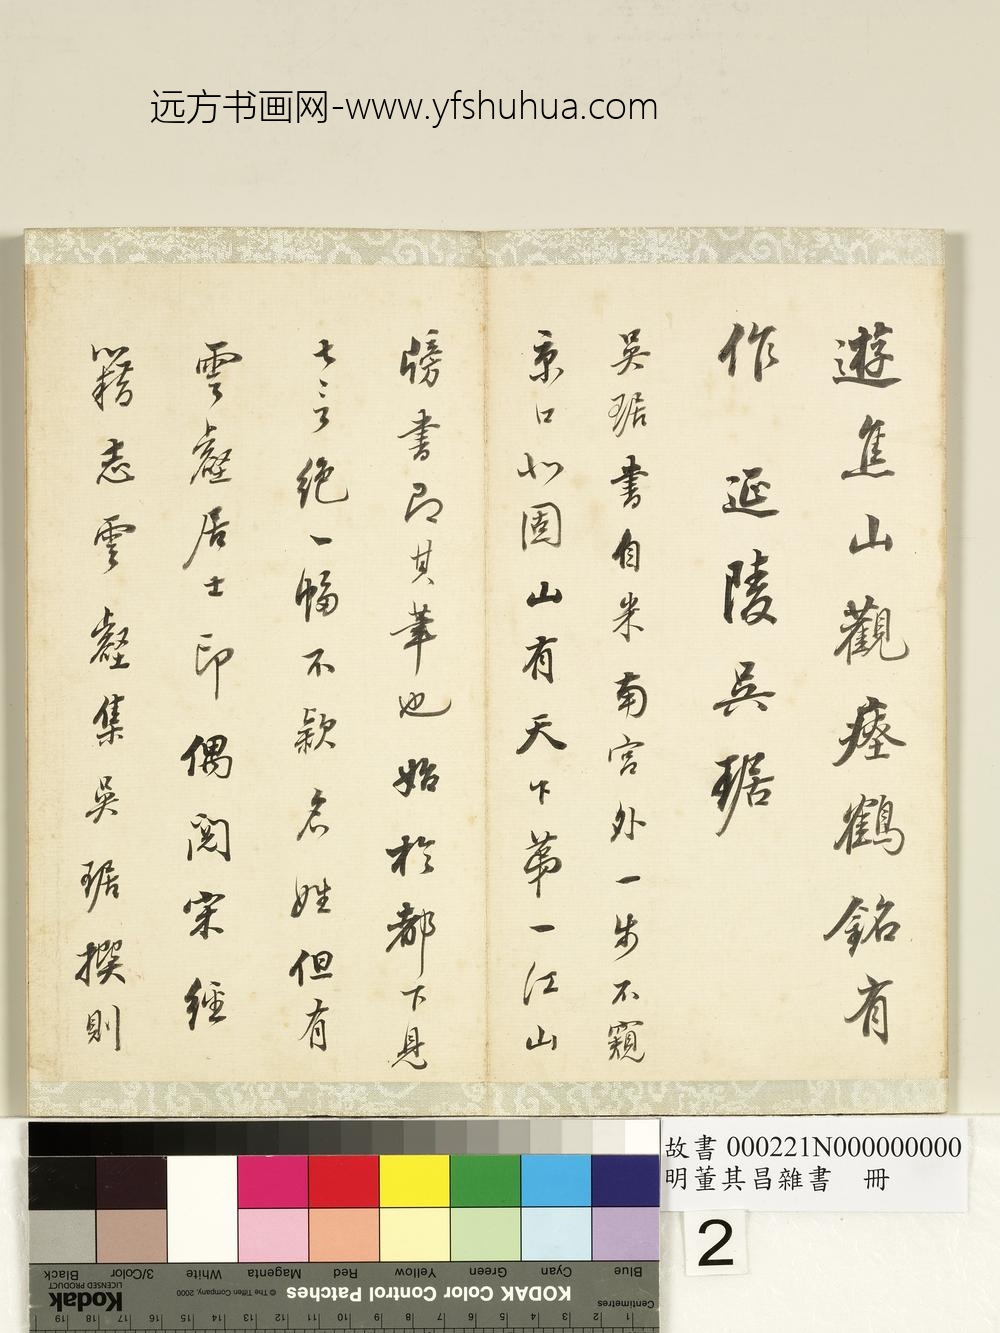 远方书画网-www.yfshuhua.com
遊焦山觀瘞鶴銘有
作 延陵吳琚
吳琚書自米南宮外一步不窺
京口北固山有天下第一江山
牓書即其筆也始於都下見
七言絕一幅不款名姓但有
雲壑居士印偶閱宋經
籍志雲壑集吳琚撰則
故書 000221N000000000
明董其昌雜書 冊
2
Blue
Cyan
Green
Yellow
Red
Magenta
White
3/Color
Black
KODAK Color Control Patches
© The Tiffen Company, 2000
Kodak
LICENSED PRODUCT
Centimetres
1 2 3 4 5 6 7 8 9 10 11 12 13 14 15 16 17 18 19